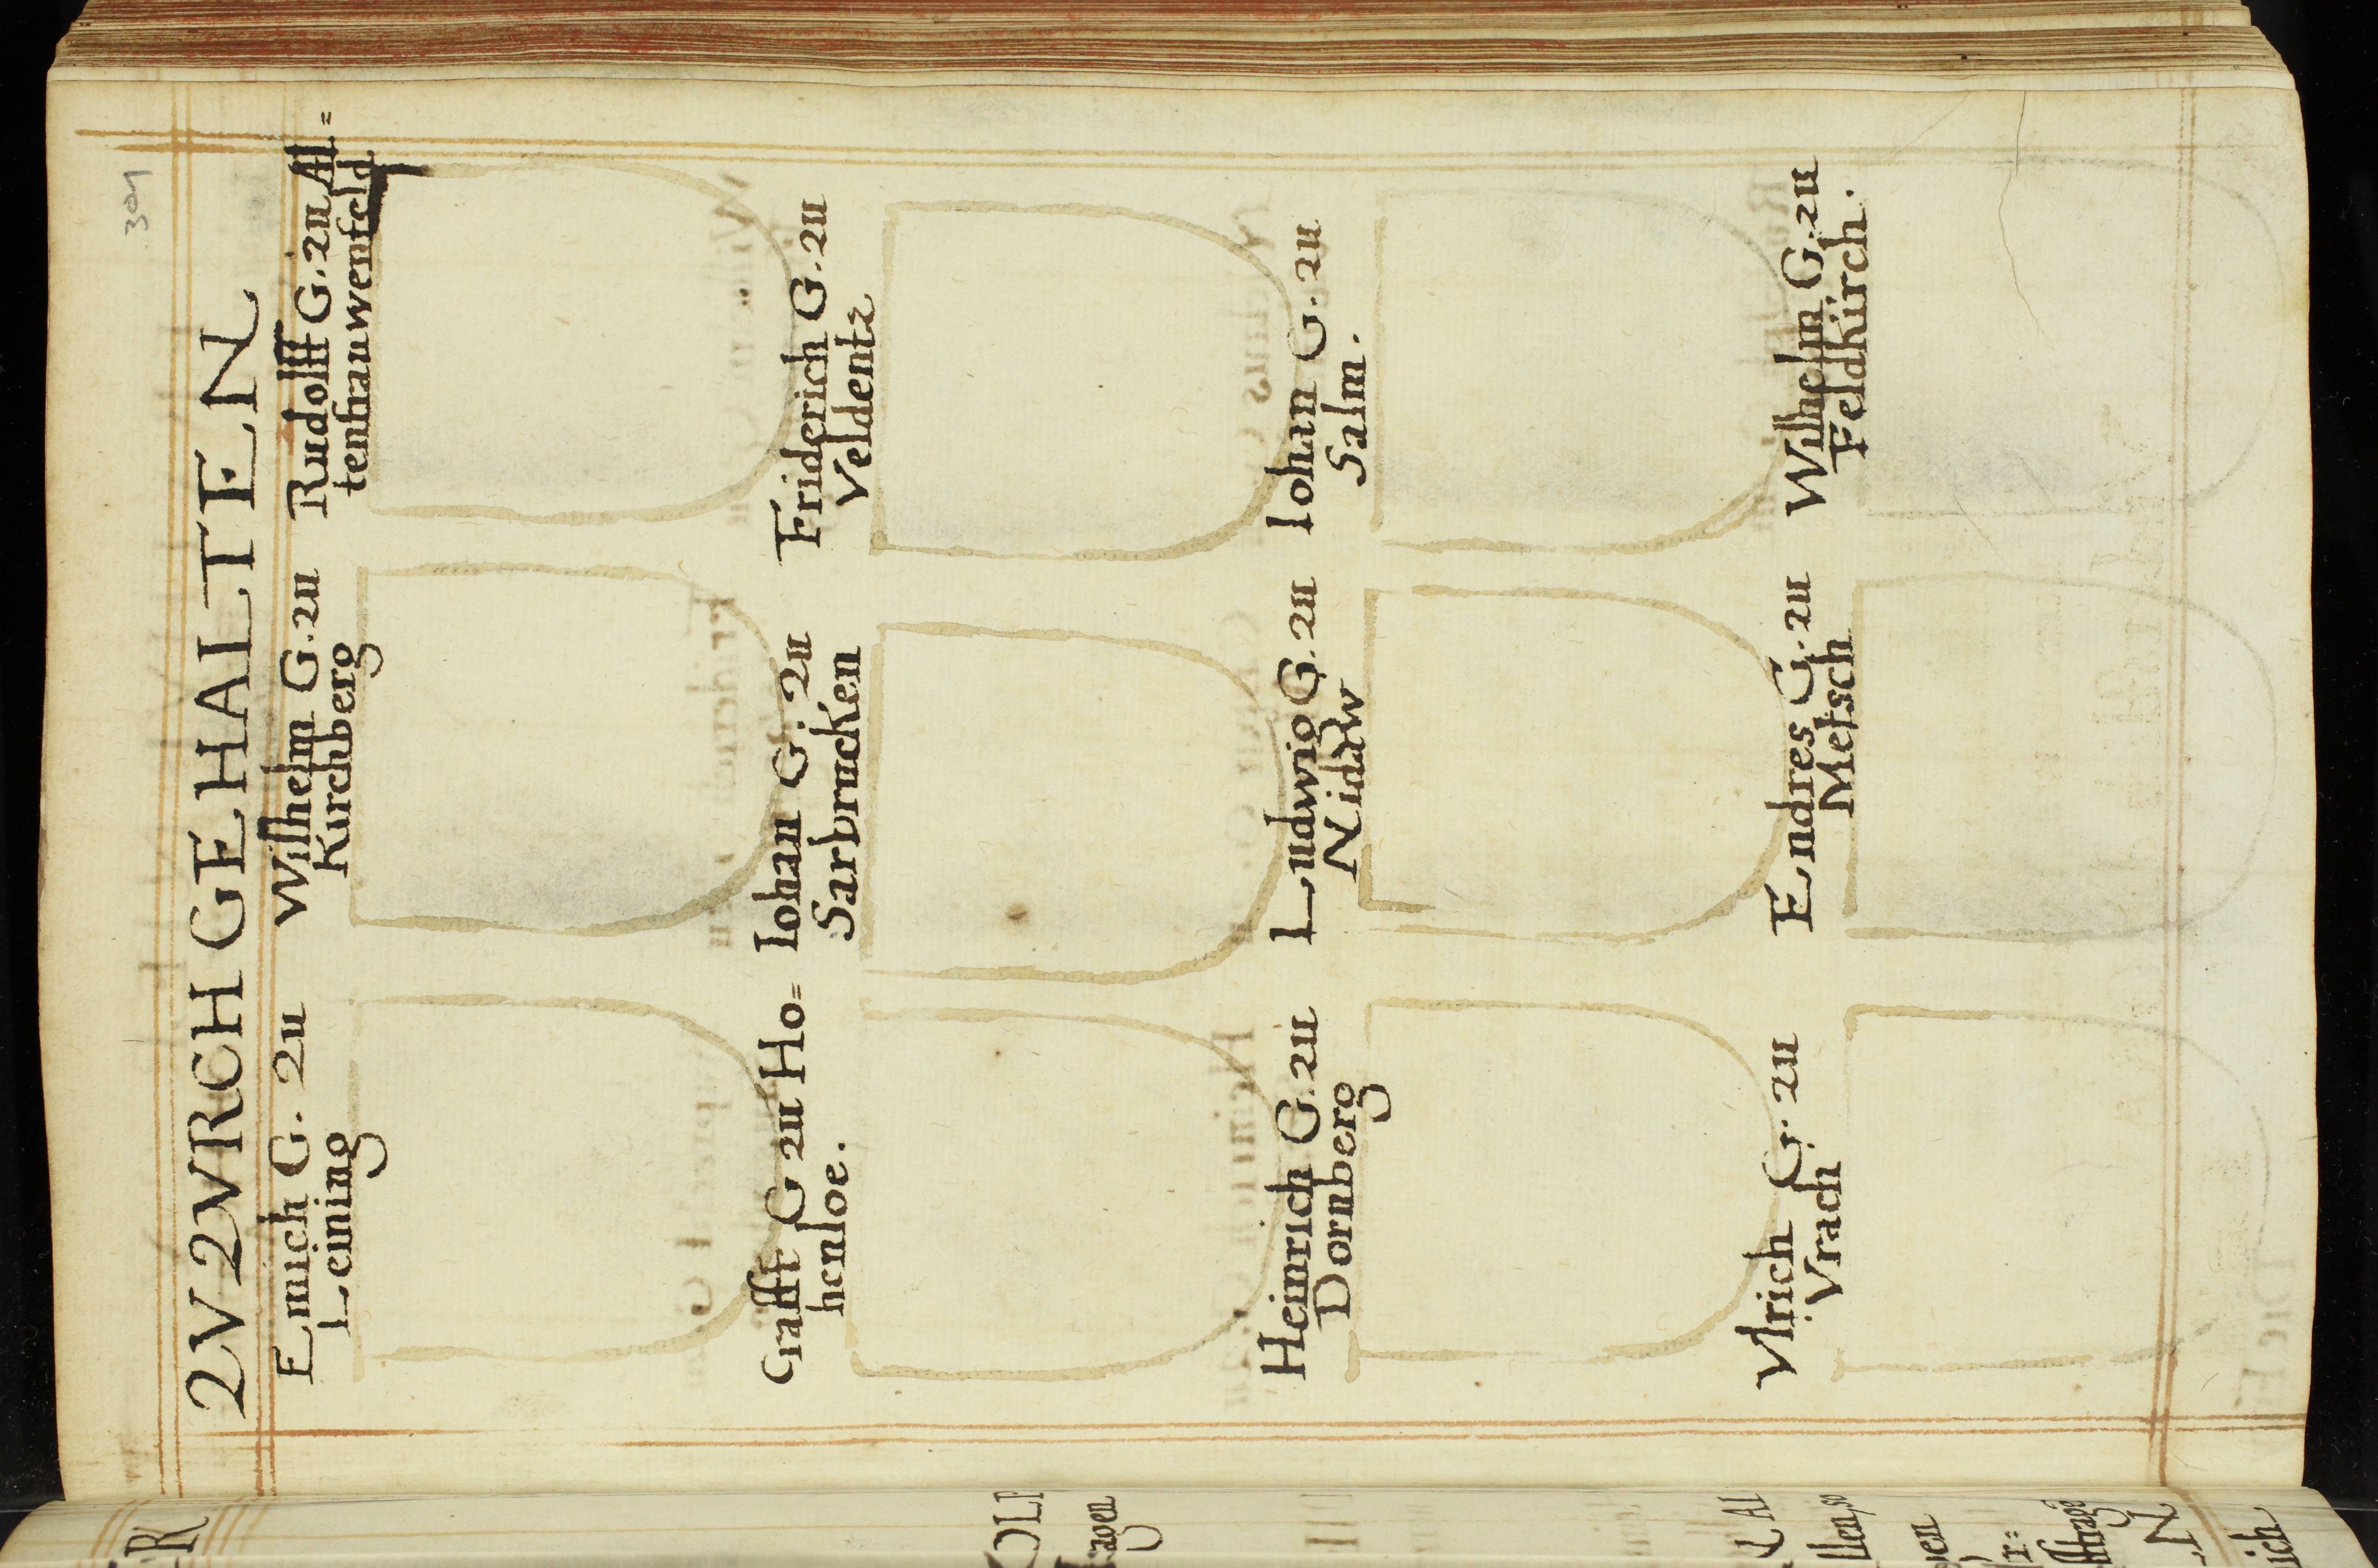 301
2V 2VRCH GEHALTEN
Emich G. 2u
Leining
Wilhelm G. 2u
Kirchberg
Rudolff G. 2u Al=
tenfrauwenfeld
Crafft G 2u Ho=
henloe.
Iohan G. 2u
Sarbrucken
Friderich G. 2u
Veldentz
Heinrich G. 2u
Dornberg
Ludwig G. 2u
Nidaw
Iohan G. 2u
Salm.
Vlrich G. 2u
Vrach
Endres G. 2u
Metsch
Wilhelm G. 2u
Feldkirch.